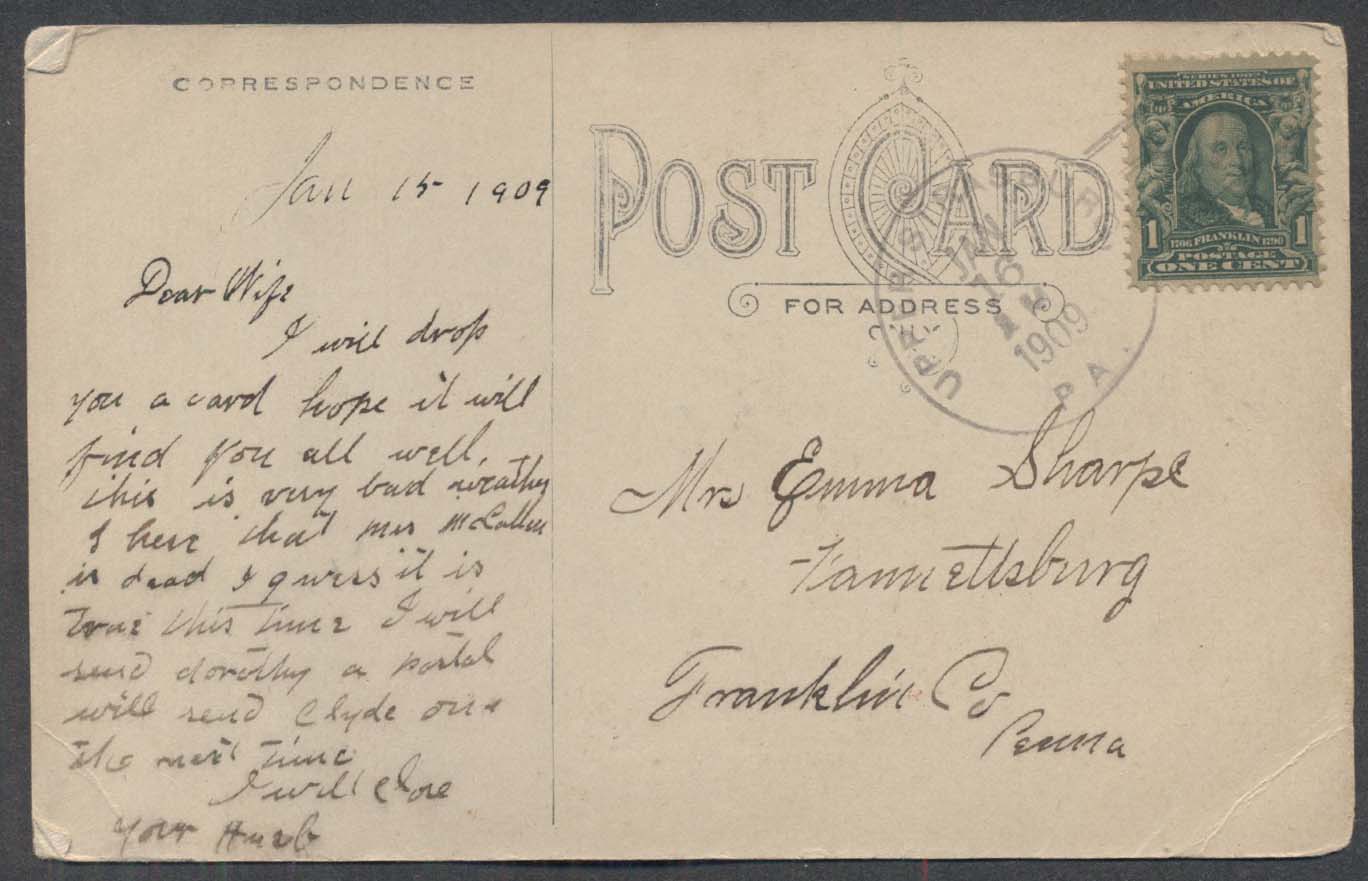 CORRESPONDENCE
Jan 15 1909
Dear Wife
I will drop
you a card hope it will
find you all well.
this is very bad weather
I here that mrs McCallen
is dead I guess it is
true this time I will
send dorothy a postal
will send Clyde one
the next time
I will close
your Husb
POST CARD
FOR ADDRESS
UPPER STRASBURG
JAN
16
1909
PA.
SERIES 1902
UNITED STATES OF
AMERICA
1 1706 FRANKLIN 1790 1
POSTAGE
ONE CENT
Mrs Emma Sharpe
Fannettsburg
Franklin Co
Penna